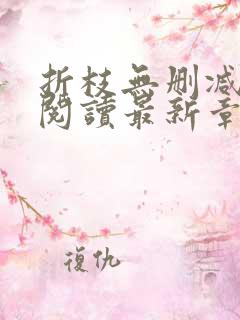 折枝無刪减
閱讀最新章
復仇